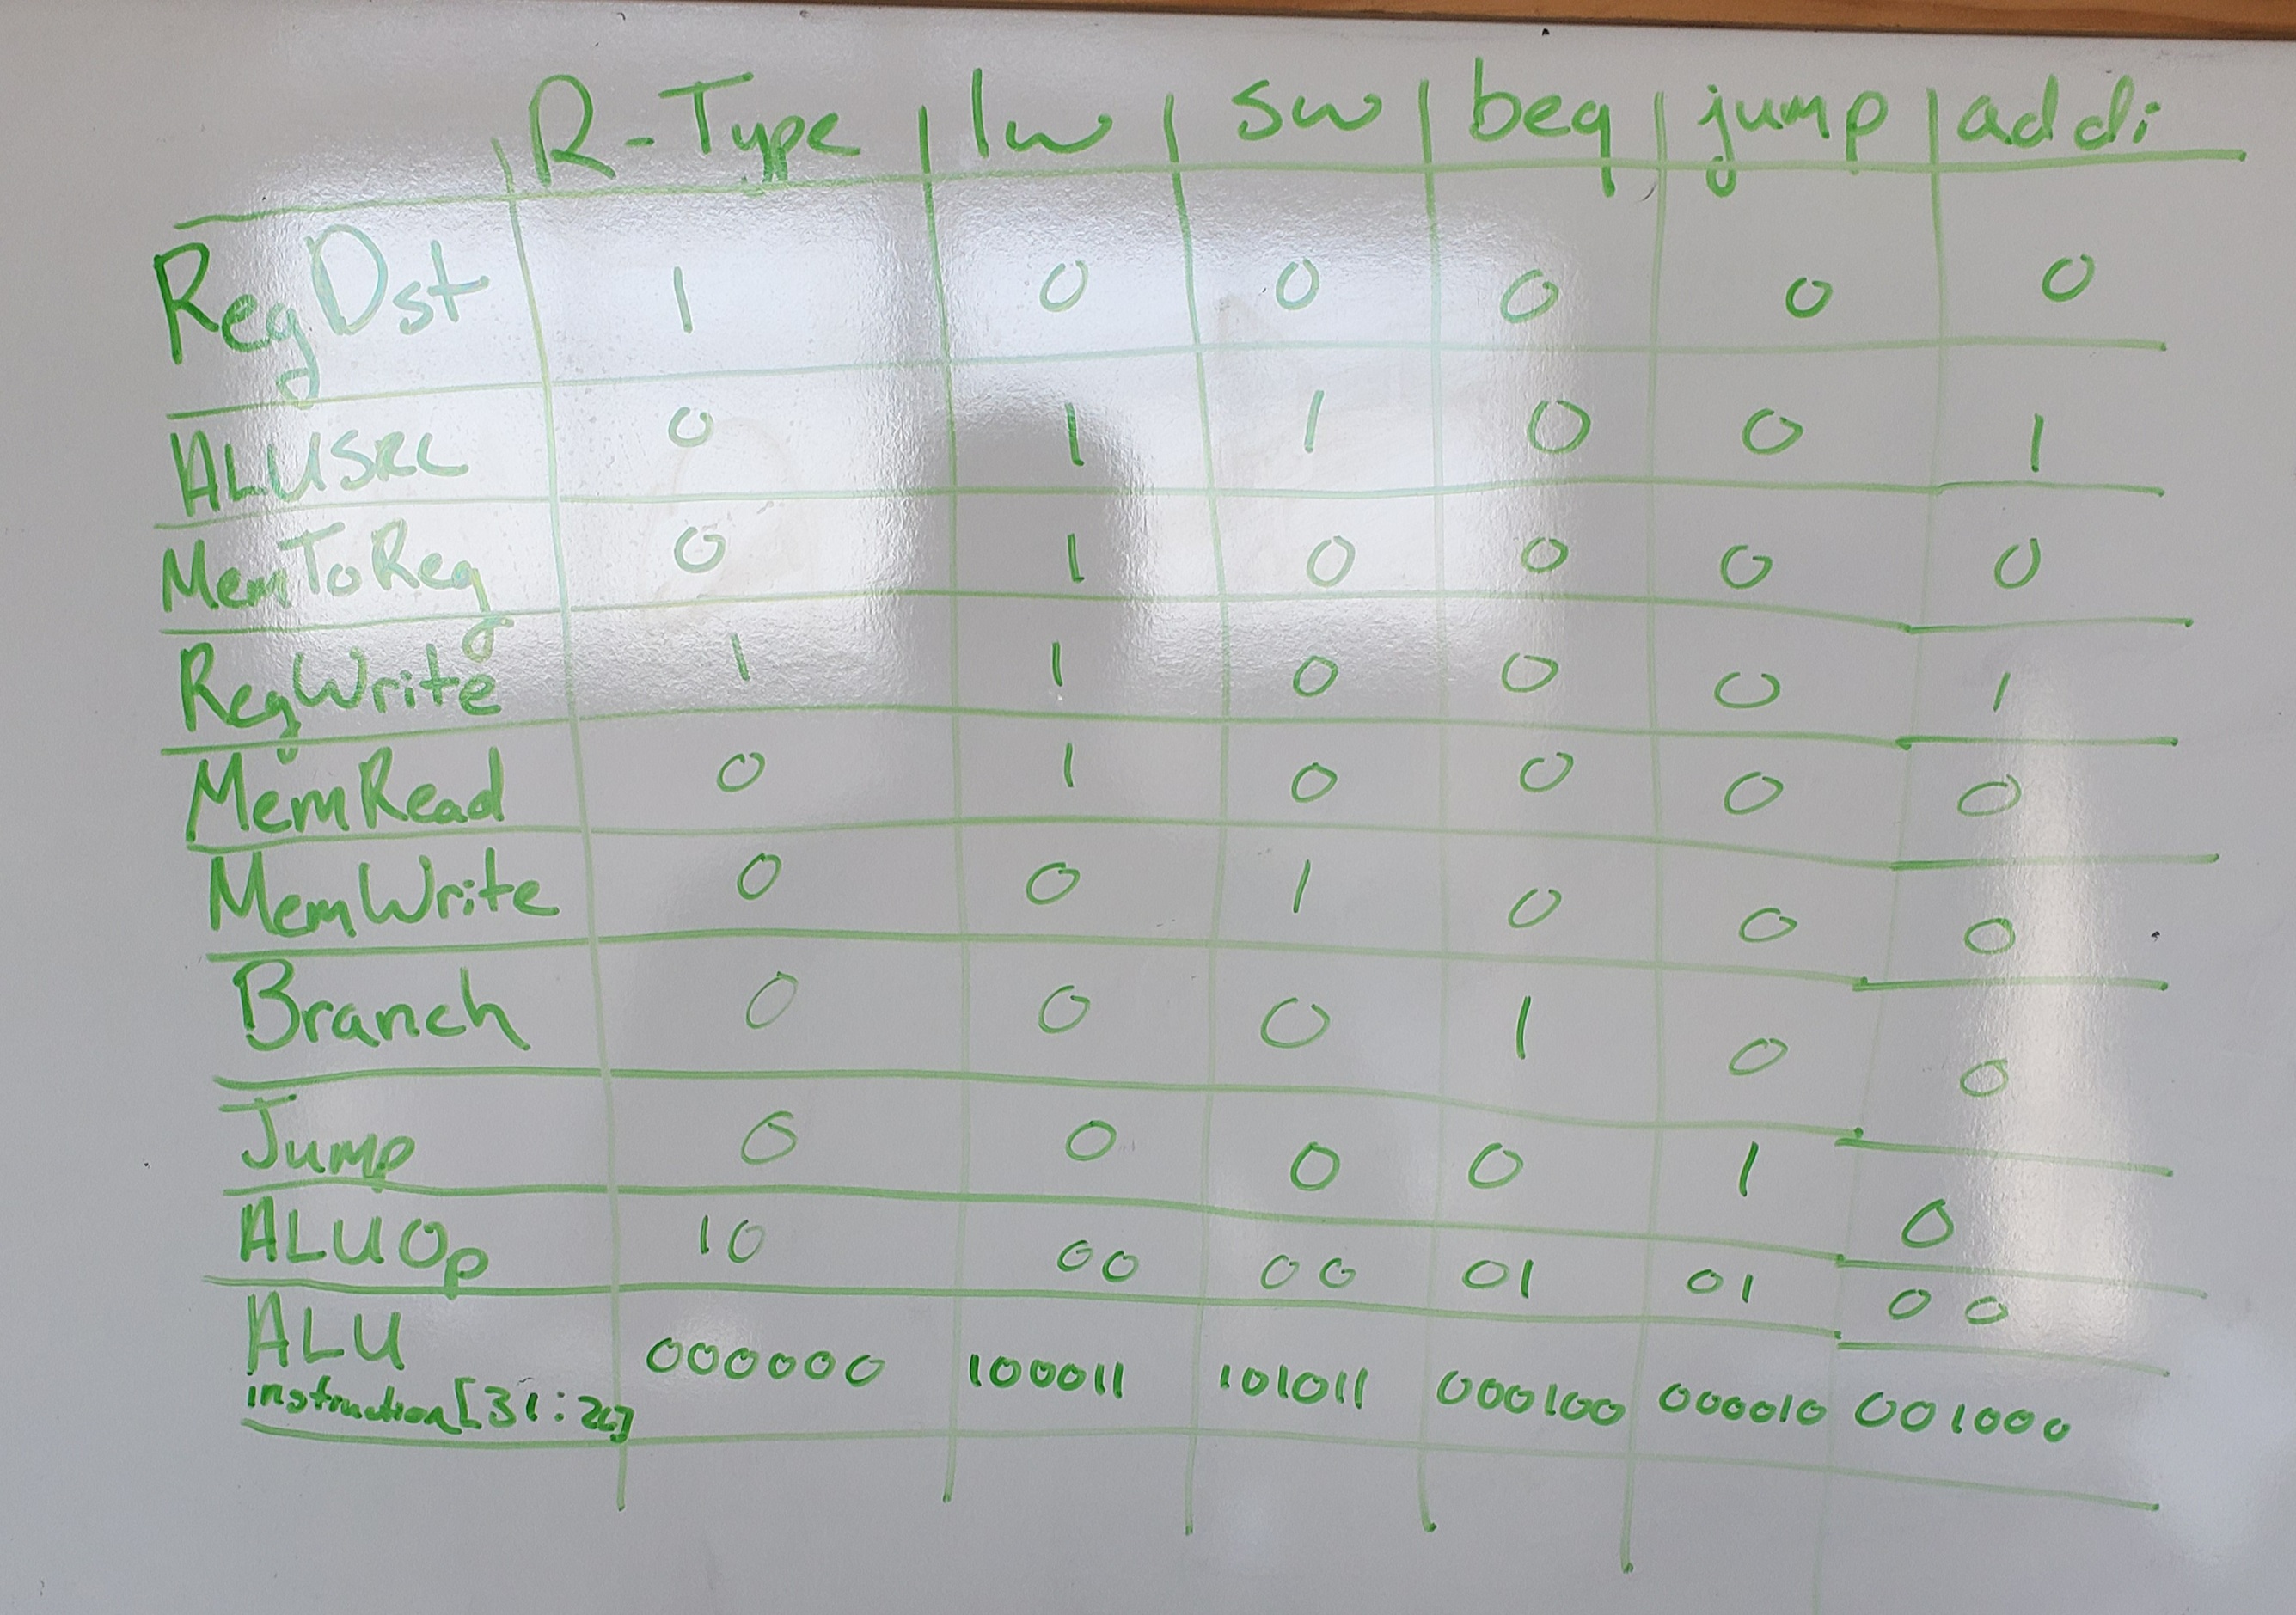 R-Type | lw | sw | beq | jump | addi
RegDst 1 0 0 0 0 0
ALUSRC 0 1 1 0 0 1
MemToReg 0 1 0 0 0 0
RegWrite 1 1 0 0 0 1
MemRead 0 1 0 0 0 0
MemWrite 0 0 1 0 0 0
Branch 0 0 0 1 0 0
Jump 0 0 0 0 1 0
ALUOp 10 00 00 01 01 00
ALU
instruction[31:26] 000000 100011 101011 000100 000010 001000